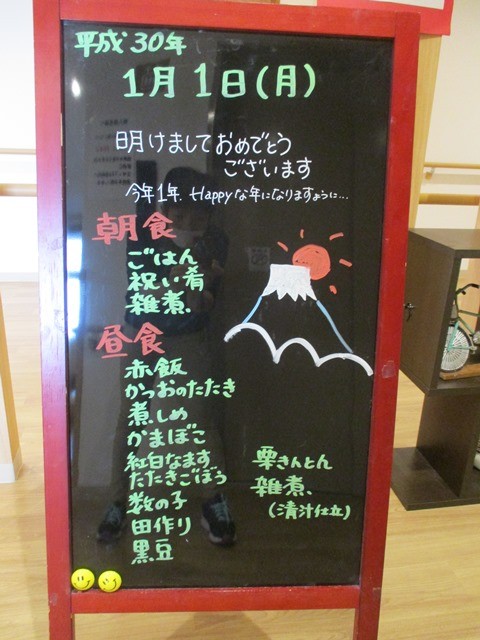 平成30年
1月1日(月)
明けましておめでとう
ございます
今年1年、Happyな年になりますように…
朝食
ごはん
祝い肴
雑煮、
昼食
赤飯
かつおのたたき
煮しめ
かまぼこ
紅白なます
たたきごぼう
数の子
田作り
黒豆
栗きんとん
雑煮、
(清汁仕立)